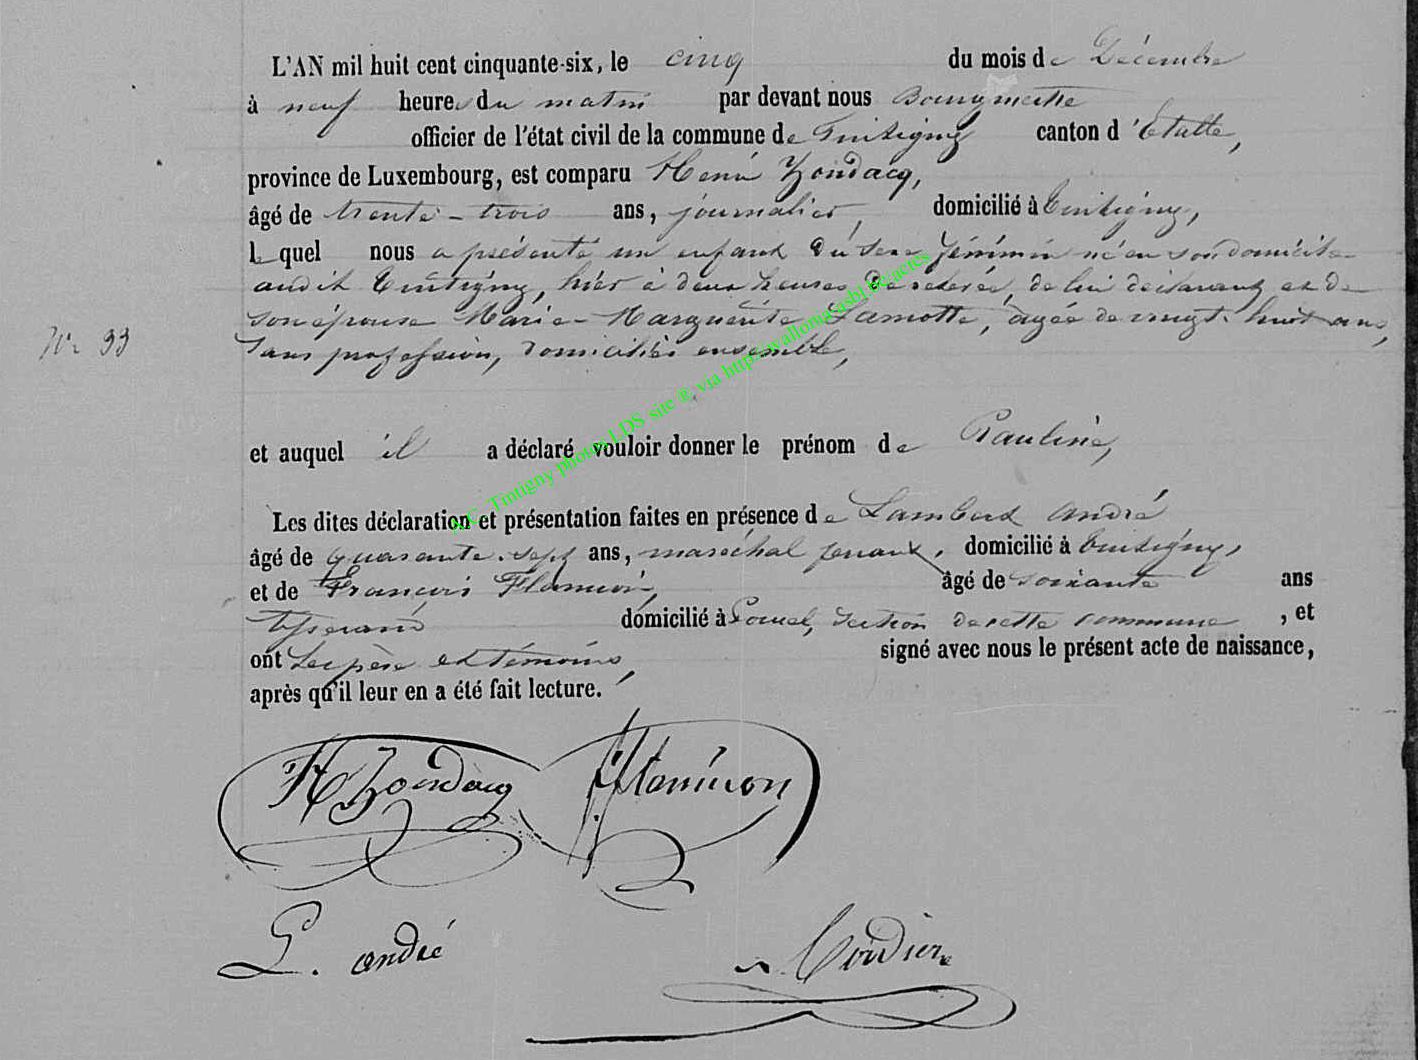 L'AN mil huit cent cinquante-six, le cinq du mois de Décembre
à neuf heures du matin par devant nous Bourgmestre
officier de l'état civil de la commune de Tintigny canton d'Etalle,
province de Luxembourg, est comparu Henri Zondacq,
âgé de trente-trois ans, journalier, domicilié à Tintigny,
lequel nous a présenté un enfant du sexe féminin né en son domicile
audit Tintigny, hier à deux heures de relevée, de lui déclarant et de
son épouse Marie-Marguerite Lamotte, agée de vingt-huit ans,
Nr 93 sans profession, domiciliés ensemble,
et auquel il a déclaré vouloir donner le prénom de Pauline,
Les dites déclaration et présentation faites en présence de Lambert André
âgé de quarante-sept ans, maréchal ferrant, domicilié à Tintigny,
et de François Flamion, âgé de soixante ans
tisserand domicilié à Poncel, section de cette commune, et
ont les père et témoins, signé avec nous le présent acte de naissance,
après qu'il leur en a été fait lecture.
H Zondacq f flamion
L. andré Cordier
A.C. Tintigny photos LDS site @ via http://wallonia-asbl.be/actes